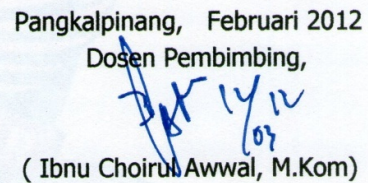 Pangkalpinang, Februari 2012
Dosen Pembimbing,
14/12
03
( Ibnu Choirul Awwal, M.Kom)